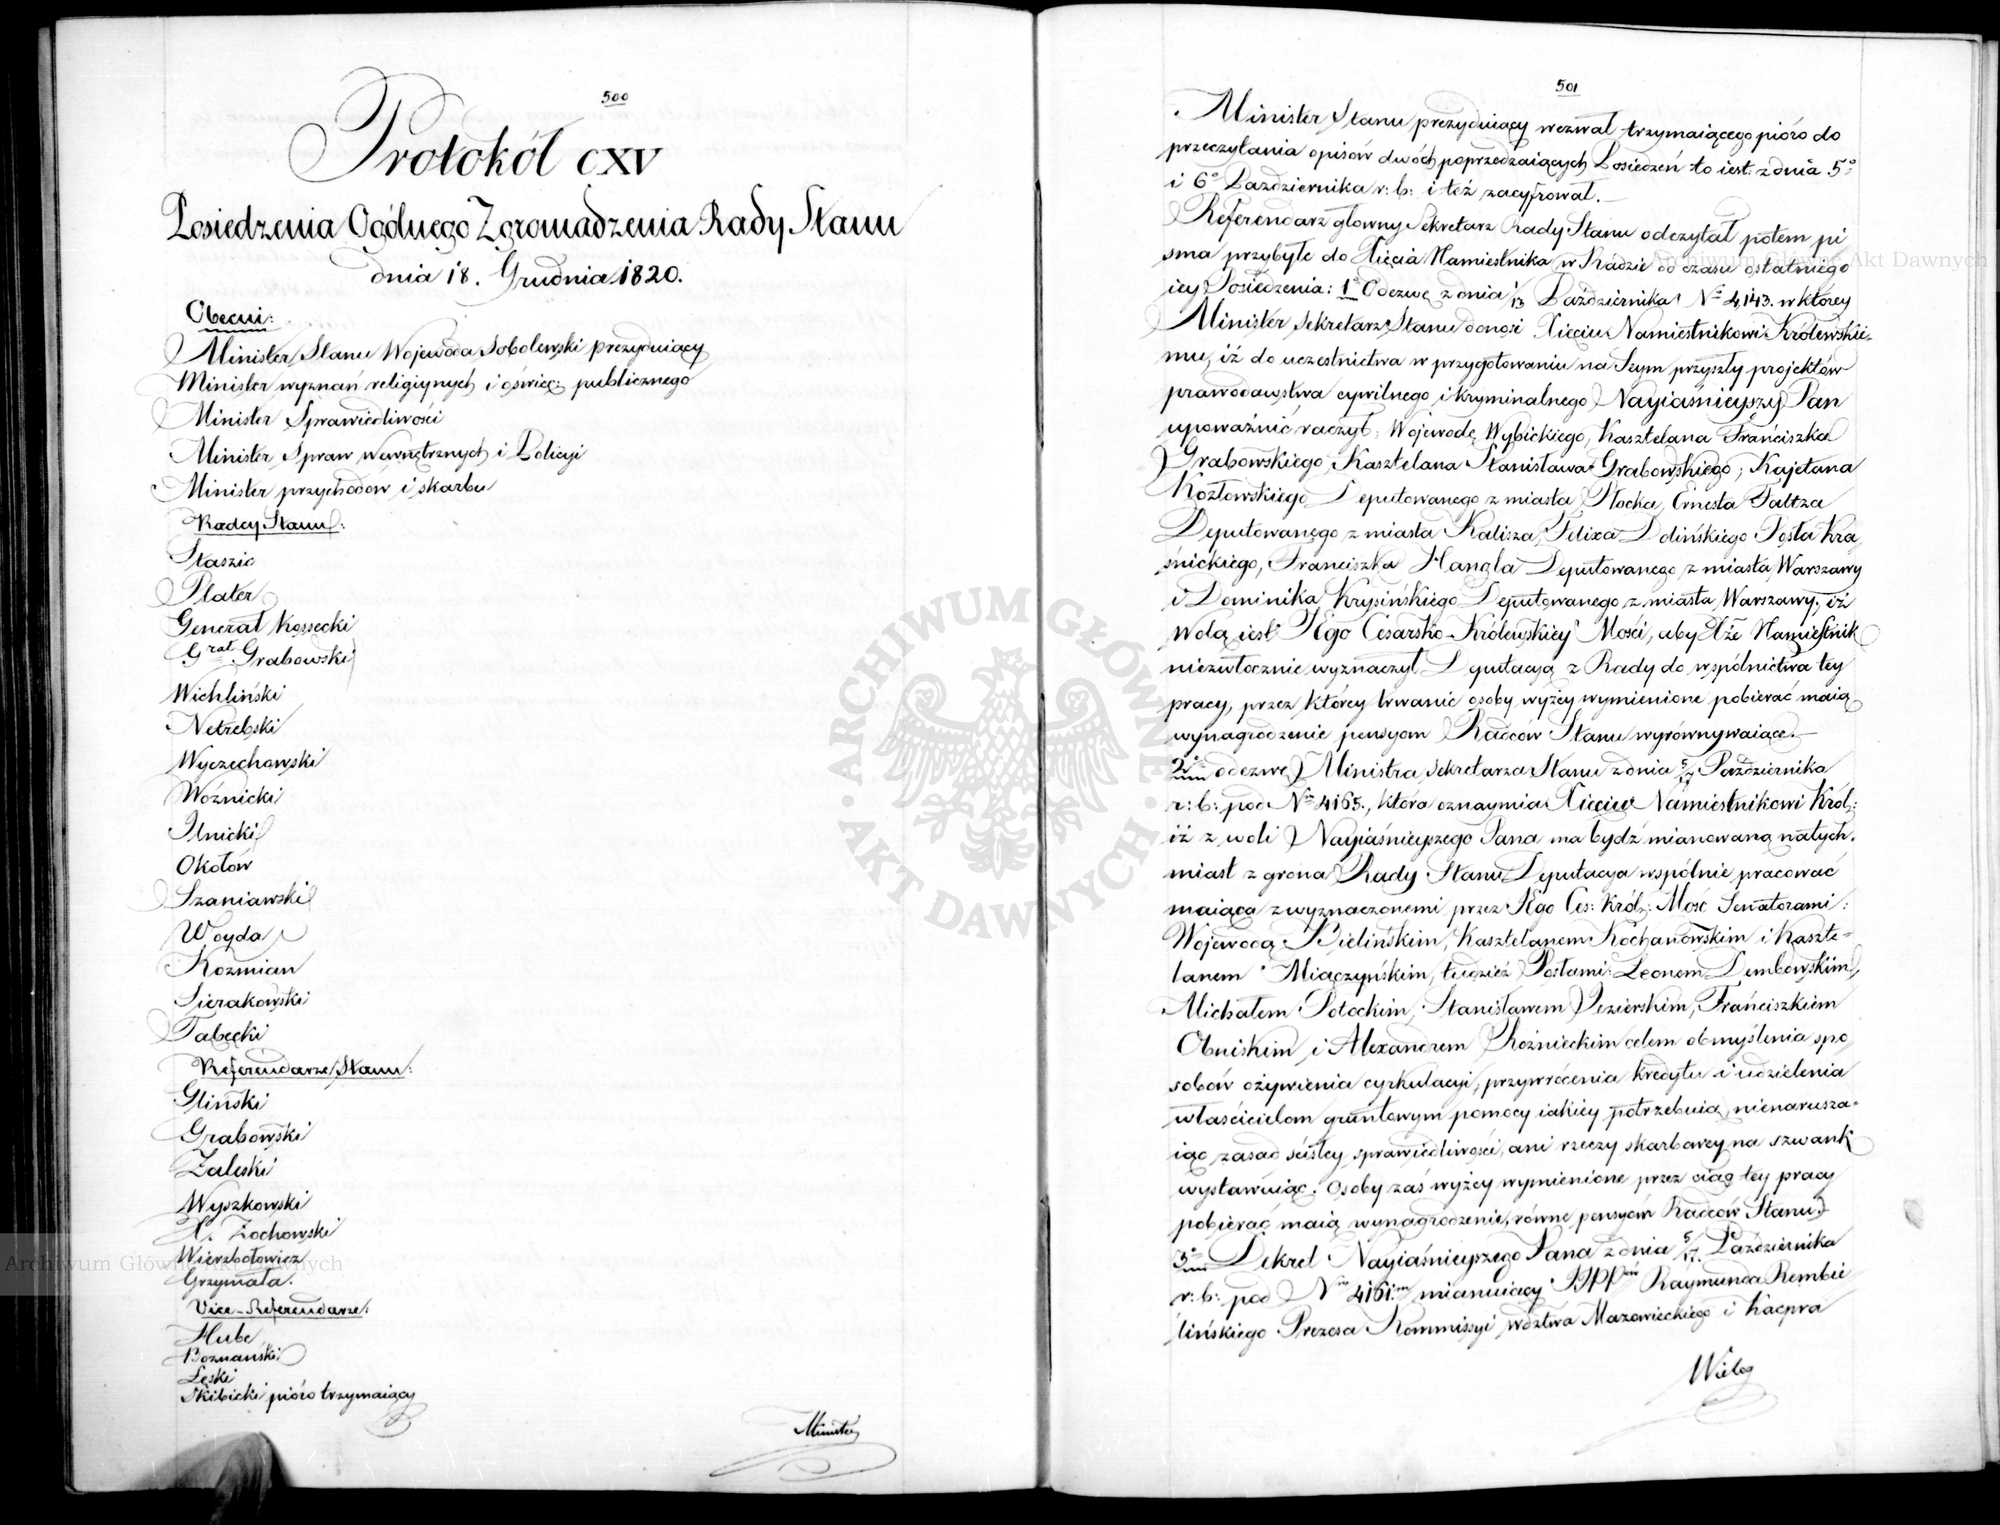 500
Protokół CXV
Posiedzenia Ogólnego Zgromadzenia Rady Stanu
dnia 18. Grudnia 1820.
Obecni:
Minister Stanu Wojewoda Sobolewski prezyduiący
Minister wyznań religiynych i oświec: publicznego
Minister Sprawiedliwości
Minister Spraw Wewnętrznych i Policyi
Minister przychodów i skarbu
Radcy Stanu:
Staszic
Plater
Generał Kossecki
Grał Grabowski
Wichliński
Netrebski
Wyczechowski
Woźnicki
Ilnicki
Okołów
Szaniawski
Woyda
Kozmian
Sierakowski
Tabęcki
Referendarze Stanu:
Gliński
Grabowski
Zaleski
Wyszkowski
X. Żochowski
Wierzbołowicz
Grzymała.
Vice-Referendarze:
Hube
Boznański
Łęski
Skibicki pióro trzymaiący
Minister
501
Minister Stanu prezyduiący wezwał trzymaiącego pióro do
przeczytania opisów dwóch poprzedzaiących Posiedzeń to iest: z dnia 5o
i 6o Października r: b: i też zacyfrował.
Referendarz główny Sekretarz Rady Stanu odczytał potem pi
sma przybyłe do Xięcia Namiestnika w Radzie od czasu ostatniego
iey Posiedzenia: 1o Odezwę z dnia 1/13 Października No 4143. w którey
Minister Sekretarz Stanu donosi Xięciu Namiestnikowi Królewskie-
mu, iż do uczestnictwa w przygotowaniu na Seym przyszły projektów
prawodawstwa cywilnego i kryminalnego Nayiaśnieyszy Pan
upoważnić raczył: Wojewodę Wybickiego, Kasztelana Franciszka
Grabowskiego, Kasztelana Stanisława Grabowskiego; Kajetana
Kozłowskiego Deputowanego z miasta Płocka, Ernesta Faltza
Deputowanego z miasta Kalisza, Felixa Dolińskiego Posła Kra
śnickiego, Franciszka Hangla Deputowanego z miasta Warszawy
i Dominika Krysińskiego Deputowanego z miasta Warszawy; iż
wolą iest JEgo Cesarsko-Królewskiey Mości, aby Xże Namiestnik
niezwłocznie wyznaczył Deputacyą z Rady do wspólnictwa tey
pracy, przez którey trwanie osoby wyżey wymienione pobierać maią
wynagrodzenie pensyom Radców Stanu wyrównywaiące.
2o odezwę Ministra Sekretarza Stanu z dnia 5/17 Października
r: b: pod No 4165., która oznaymia Xięciu Namiestnikowi Król:
iż z woli Nayiaśnieyszego Pana ma bydź mianowaną natych.
miast z grona Rady Stanu Deputacya wspólnie pracować
maiąca z wyznaczonemi przez JEgo Ces: Król: Mość Senatorami:
Wojewodą Bielińskim, Kasztelanem Kochanowskim i Kaszte-
lanem Miączyńskim, tudzież Posłami: Leonem Dembowskim,
Michałem Potockim, Stanisławem Jezierskim, Franciszkiem
Obniskim i Alexandrem Rożnieckim celem obmyślenia spo
sobów ożywienia cyrkulacyi, przywrócenia kredytu i udzielenia
właścicielom gruntowym pomocy iakiey potrzebuią, nienarusza-
iąc zasad ścisłey sprawiedliwości, ani rzeczy skarbowey na szwank
wystawuiąc; osoby zaś wyżey wymienione przez ciąg tey pracy
pobierać maią wynagrodzenie, równe pensyóm Radców Stanu.
3o Dekret Nayiaśnieyszego Pana z dnia 5/17. Października
r: b: pod Nm 4161. mianuiący JPP Raymunda Rembie
lińskiego Prezesa Kommissyi wdztwa Mazowieckiego i Kacpra
Wielog
ARCHIWUM GŁÓWNE AKT DAWNYCH
Archiwum Główne Akt Dawnych
Archiwum Główne Akt Dawnych